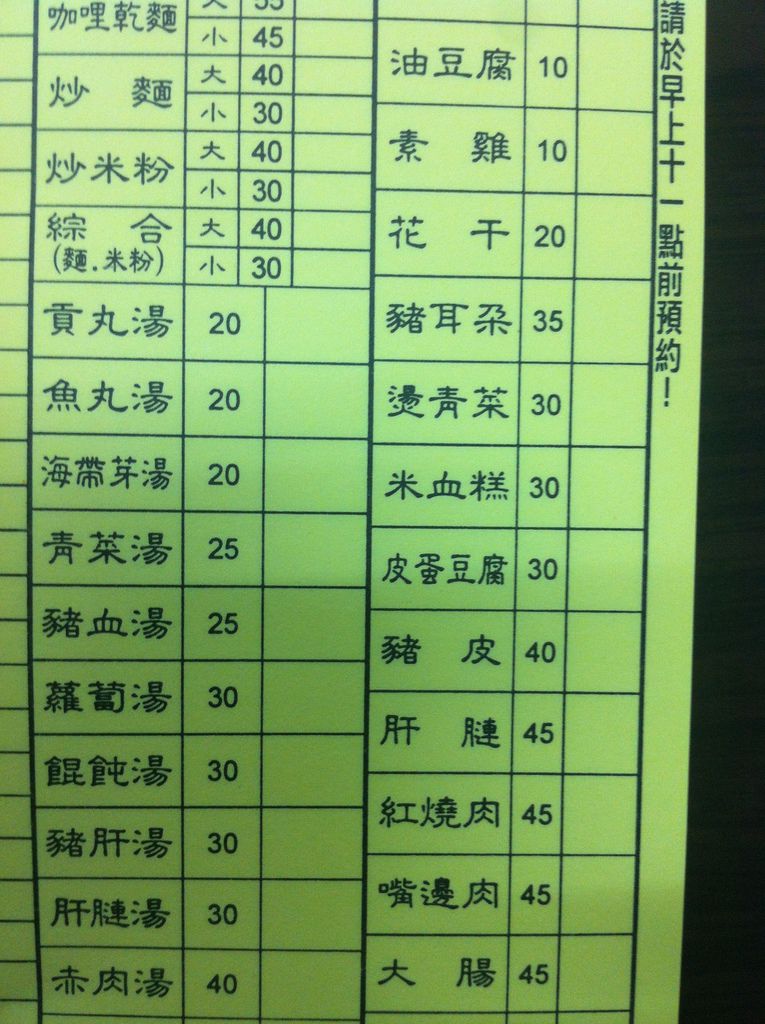 咖哩乾麵 大 55
小 45
炒麵 大 40
小 30
炒米粉 大 40
小 30
綜合 大 40
(麵.米粉) 小 30
貢丸湯 20
魚丸湯 20
海帶芽湯 20
青菜湯 25
豬血湯 25
蘿蔔湯 30
餛飩湯 30
豬肝湯 30
肝腱湯 30
赤肉湯 40
油豆腐 10
素雞 10
花干 20
豬耳朵 35
燙青菜 30
米血糕 30
皮蛋豆腐 30
豬皮 40
肝腱 45
紅燒肉 45
嘴邊肉 45
大腸 45
請於早上十一點前預約！